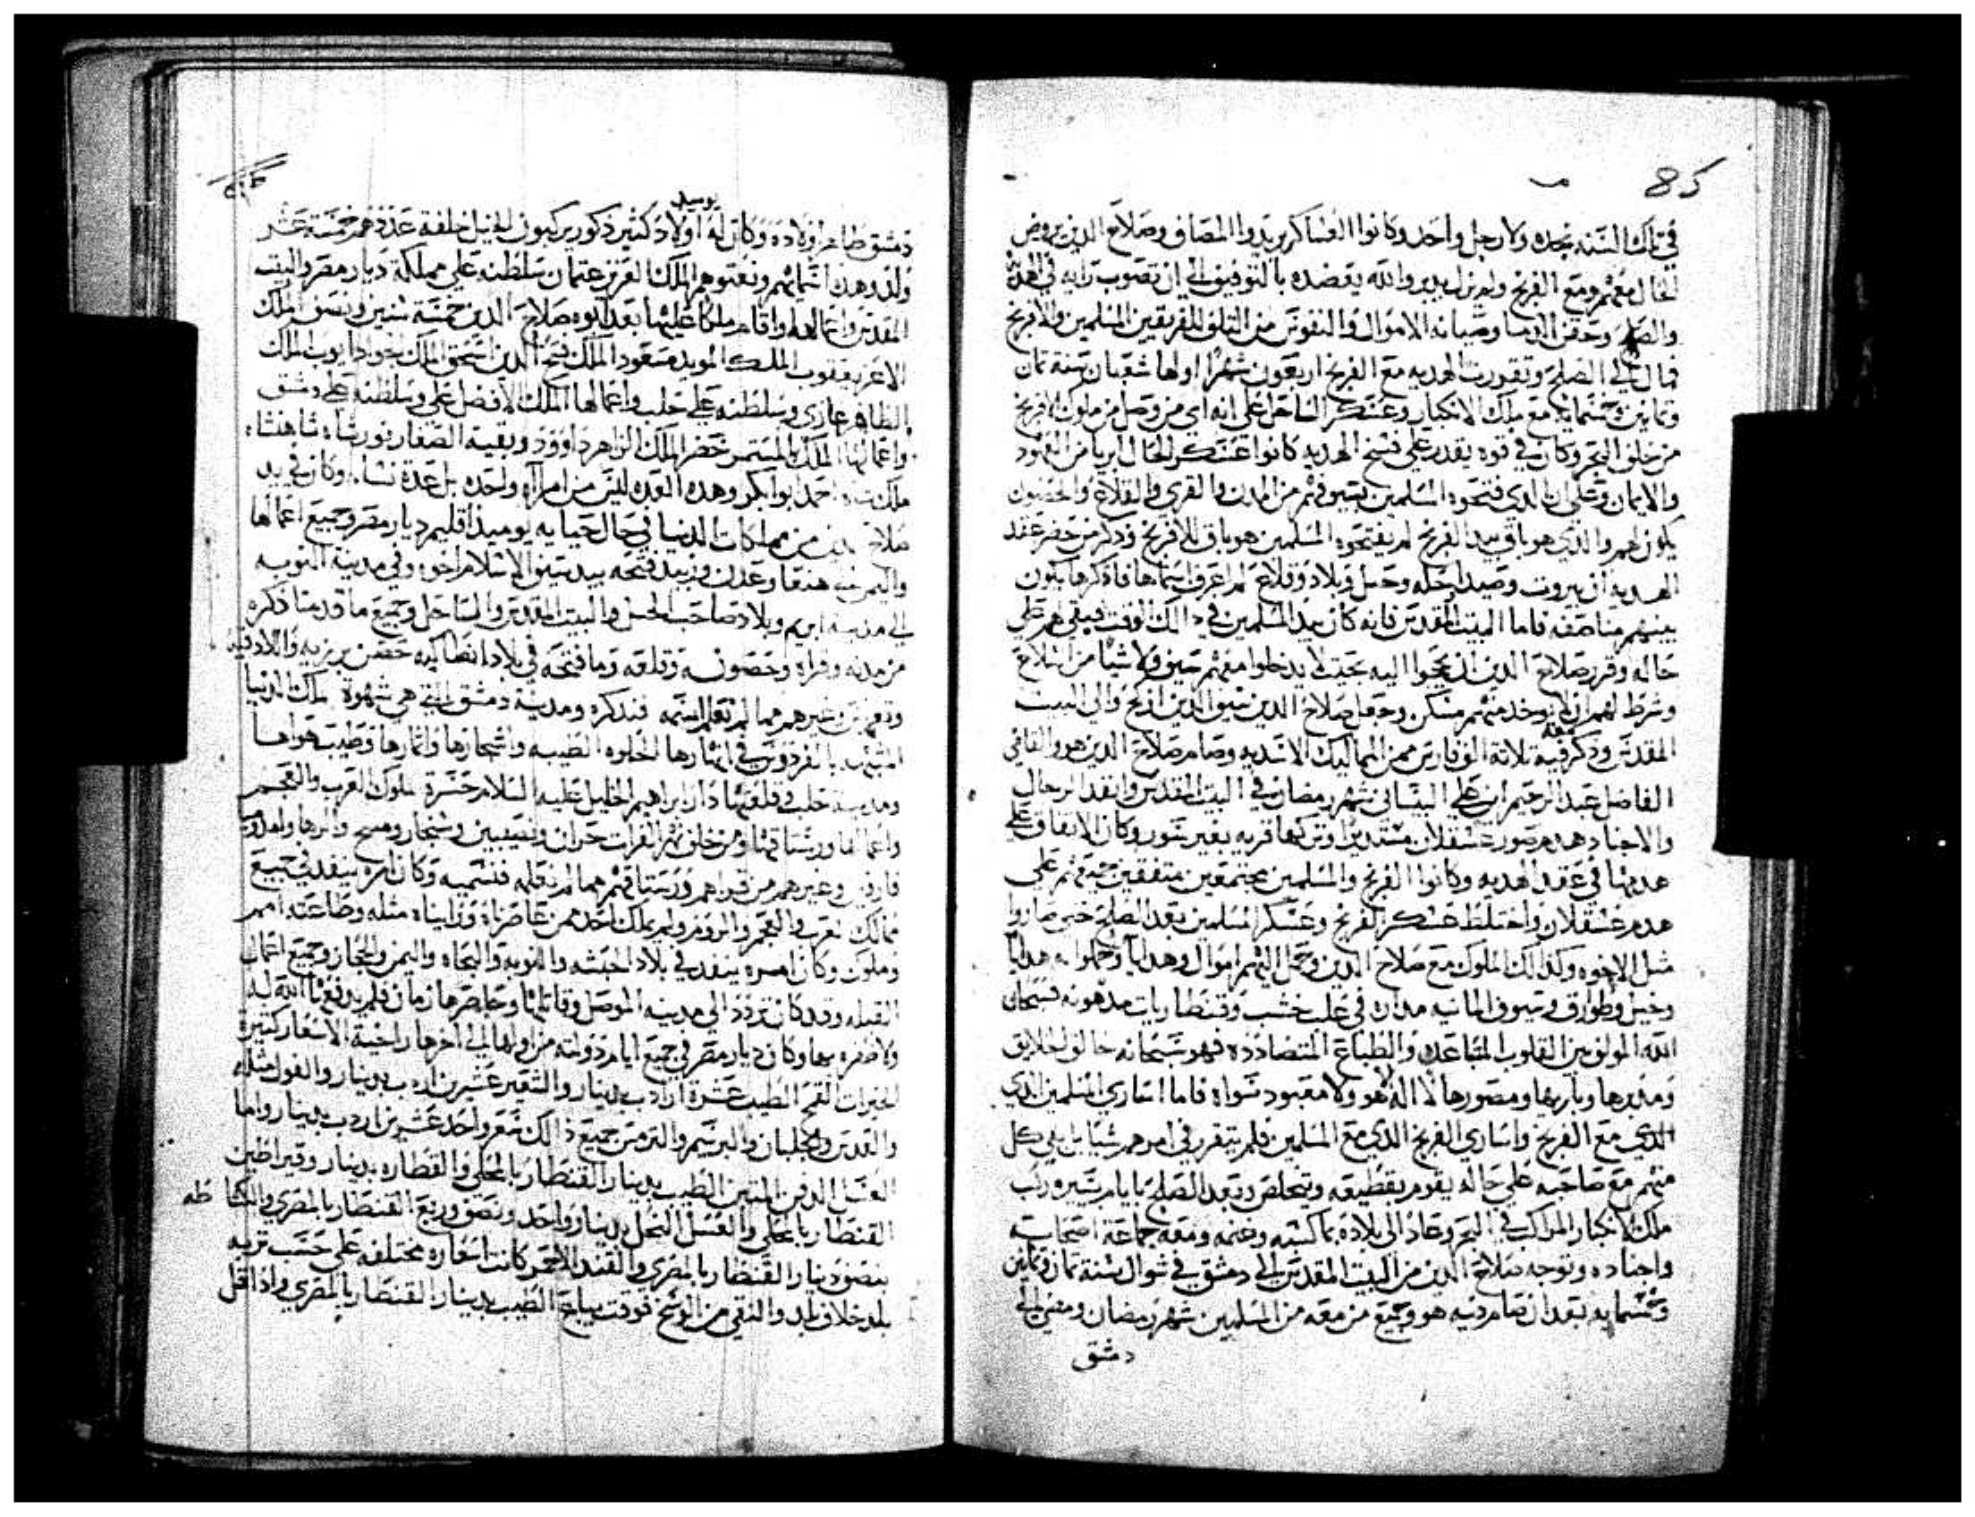 85
في تلك السنه نجده ولا رجل واحد وكانوا العساكر يريدوا المصاف وصلاح الدين يروض
الحال معهم ومع الفرنج ولم يزل يدبر والله يعضده بالتوفيق الي ان تصوب رايه في الهدنة
والصلح وحقن الدما وصيانه الاموال والنفوس من التلف للفريقين المسلمين والافرنج
فمال الي الصلح وتقررت الهدنه مع الفرنج اربعون شهرا اولها شعبان سنة ثمان
وثمانين وخمسمايه مع ملك الانكتار وعسكر الساحل علي انه اي من وصل من ملوك الافرنج
من خلف البحر وكان في قوه يقدر علي فسخ الهدنه كانوا عسكر الحال ابريا من العهود
والايمان وعلي ان الذي فتحوه المسلمين بسيوفهم من المدن والقري والقلاع والحصون
يكون لهم والذي هو باقي بيد الفرنج لم يفتحوه المسلمين هو باق للافرنج وذكر من حضر عقد
الهدنه ان بيروت وصيدا وجبله وجبل وبلاد وقلاع لم اعرف اسماها فاذكرها يكون
بينهم مناصفه فاما البيت المقدس فانه كان بيد المسلمين في ذالك الوقت فبقي لهم علي
حاله وقرر صلاح الدين ان يحجوا اليه بحيث لا يدخلوا معهم سيف ولا شيا من السلاح
وشرط لهم ان لا يوخذ منهم مكس وجعل صلاح الدين سيف الدين ازكج والي البيت
المقدس وذكر فيه معه ثلاثة الف فارس ممن المماليك الاسديه وصام صلاح الدين هو والقاضي
الفاضل عبد الرحيم ابن علي البيساني شهر رمضان في البيت المقدس وانفد الرجال
والاجناد هدم صور عسقلان مستديرا وتركها قريه بغير سور وكان الاتفاق علي
هدمها في عقد الهدنه وكانوا الفرنج والمسلمين مجتمعين متفقين جميعهم علي
هدم عسقلان واختلط عسكر الفرنج وعسكر المسلمين بعد الصلح حتي صاروا
مثل الاخوه وكذالك الملوك مع صلاح الدين وحمل اليهم اموال وهدايا وحملوا له هدايا
وخيل وطوارق وسيوف المانيه مداره في علب خشب وقنطاريات مدهونه فسبحان
الله المولف بين القلوب المتباعده والطباع المتضادده فهو سبحانه خالق الخلايق
ومدبرها وباريها ومصورها لا اله الا هو ولا معبود سواه فاما اساري المسلمين الذي
الذي مع الفرنج واساري الفرنج الذي مع المسلمين فلم يتقرر في امرهم شيا بل بقي كل
منهم مع صاحبه علي حاله يقوم بقطيعه ويتخلص وبعد الصلح بايام يسيره ركب
ملك الانكتار المراكب في البحر وعاد الي بلاده بما كسبه وغنمه ومعه جماعة اصحابه
واجناده وتوجه صلاح الدين من البيت المقدس الي دمشق في شوال سنة ثمان وثمانين
وخمسمايه بعد ان صام فيه هو وجميع من معه من المسلمين شهر رمضان ومضي الي
دمشق
يوميذ
دمشق طاهر اولاده وكان له اولاد كثير ذكور يركبون الخيل خلفه عددهم خمسة عشر
ولد وهذه اسمايهم ونعتوهم الملك العزيز عثمان سلطنه علي مملكة ديار مصر والبيت
المقدس واعمالها واقام ملكا عليها بعد ابوه صلاح الدين خمسة سنين ونصف الملك
الاعز يعقوب الملك المويد مسعود الملك فتح الدين اسحق الملك الجواد ايوب الملك
الظاهر غازي وسلطنه علي حلب واعمالها الملك الافضل علي وسلطنه علي دمشق
واعمالها الملك المستمر خضر الملك الزاهر داوود وبقية الصغار تورنشاه شاهنشاه
ملك شاه احمد ابو بكر وهذه العده ليس من امراه واحده بل عدة نساء وكان في يد
صلاح الدين من مملكات الدنيا في حال حياته يوميذ اقليم ديار مصر وجميع اعمالها
واليمن صنعا وعدن وزبيد فتحه بيد سيف الاسلام اخوه وفي مدينة النوبه
الي مدينة ابريم وبلاد صاحب الجبل والبيت المقدس والساحل وجميع ما قدمنا ذكره
من مدنه وقراه وحصونه وقلعه وما فتحه في بلاد انطاكيه حصن برزيه واللادقيه
وغيرهم مما لم نعلم اسمه فنذكره ومدينة دمشق التي هي شهوة ملك الدنيا
المشبهه بالفردوس في انهارها الحلوه الطيبه واشجارها واثمارها وطيب هواها
ومدينة حلب وقلعتها دار ابراهيم الخليل عليه السلام حسرة ملوك العرب والعجم
واعمالها ورستاقها ومن خلف نهر الفرات حران ونصيبين وسنجار ومنبج والرها وامد وميا
فارقين وغيرهم من قراهم ورستاقهم مما لم نعلمه فنسميه وكان امره ينفد في جميع
ممالك العرب والعجم والروم ولم يملك احد ممن عاصرناه ورايناه مثله وطاعته امم
وملوك وكان امره ينفد في بلاد الحبشه والنوبه والبجاه واليمن والحجاز وجميع اعمال
القبله وقد كان تردد الي مدينه الموصل وقاتلها وحاصرها زمان فلم يدفعها الله له
ولا ظفره بها وكان ديار مصر في جميع ايام دولته من اولها الي اخرها راخية الاسعار كثيرة
الخيرات القمح الطيب عشرة ارادب بدينار والشعير عشرين اردب بدينار والفول مثله
والعدس والجلبان والبرسيم والترمس جميع ذالك سعر واحد عشرين اردب بدينار واما
العسل الدفن المتين الطيب بدينار القنطار بالمحلي والقطاره بدينار وقيراطين
القنطار بالمحلي والعسل النحل بدينار واحد ونصف وربع القنطار بالمصري والكشا طه
بنصف دينار القنطار بالمصري والقند الاحمر كانت اسعاره مختلفه علي حسب تربه
بلد خلاف بلد والنقي من الوسخ فوقت يباع الطيب بدينار القنطار بالمصري واذا قل